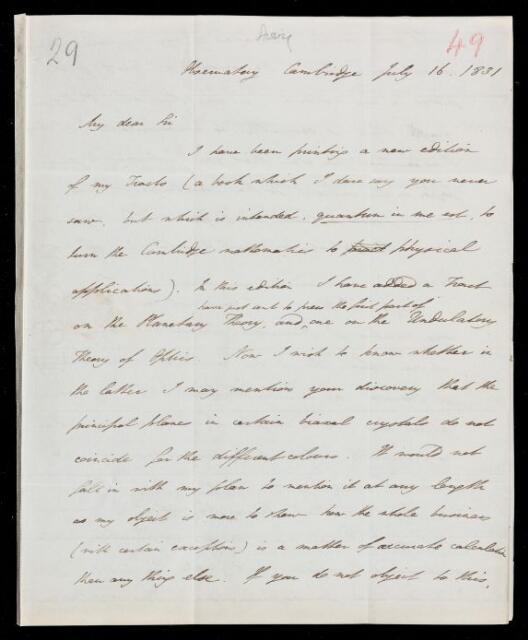 29
Airy
49
Observatory Cambridge July 16. 1831
My dear Sir
I have been printing a new edition
of my Tracts (a book which I dare say you never
saw, but which is intended, quantum in me est, to
turn the Cambridge mathematics to physical
applications). In this edition I have added a Tract
have just sent to press the first part of
on the Planetary Theory, and one on the Undulatory
Theory of Optics. Now I wish to know whether in
the latter I may mention your discovery that the
principal planes in certain biaxal crystals do not
coincide for the different colours. It would not
fall in with my plan to mention it at any length
as my object is more to show how the whole business
(with certain exceptions) is a matter of accurate calculation
than any thing else. If you do not object to this,